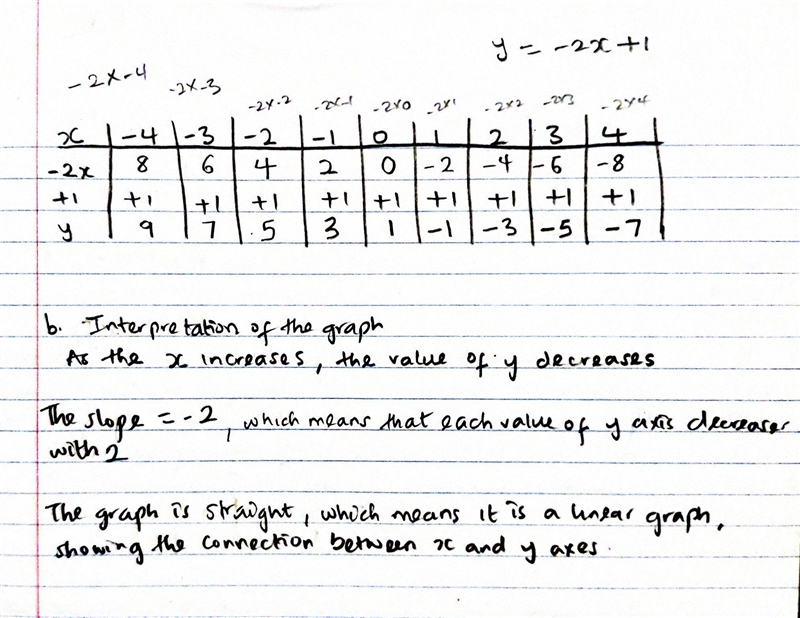 y = -2x+1
-2x-4 -2x-3 -2x-2 -2x-1 -2x0 -2x1 -2x2 -2x3 -2x4
x | -4 | -3 | -2 | -1 | 0 | 1 | 2 | 3 | 4
-2x | 8 | 6 | 4 | 2 | 0 | -2 | -4 | -6 | -8
+1 | +1 | +1 | +1 | +1 | +1 | +1 | +1 | +1 | +1
y | 9 | 7 | 5 | 3 | 1 | -1 | -3 | -5 | -7
b. Interpretation of the graph
As the x increases, the value of y decreases
The slope = -2, which means that each value of y axis decreases
with 2
The graph is straight, which means it is a linear graph,
showing the connection between x and y axes.